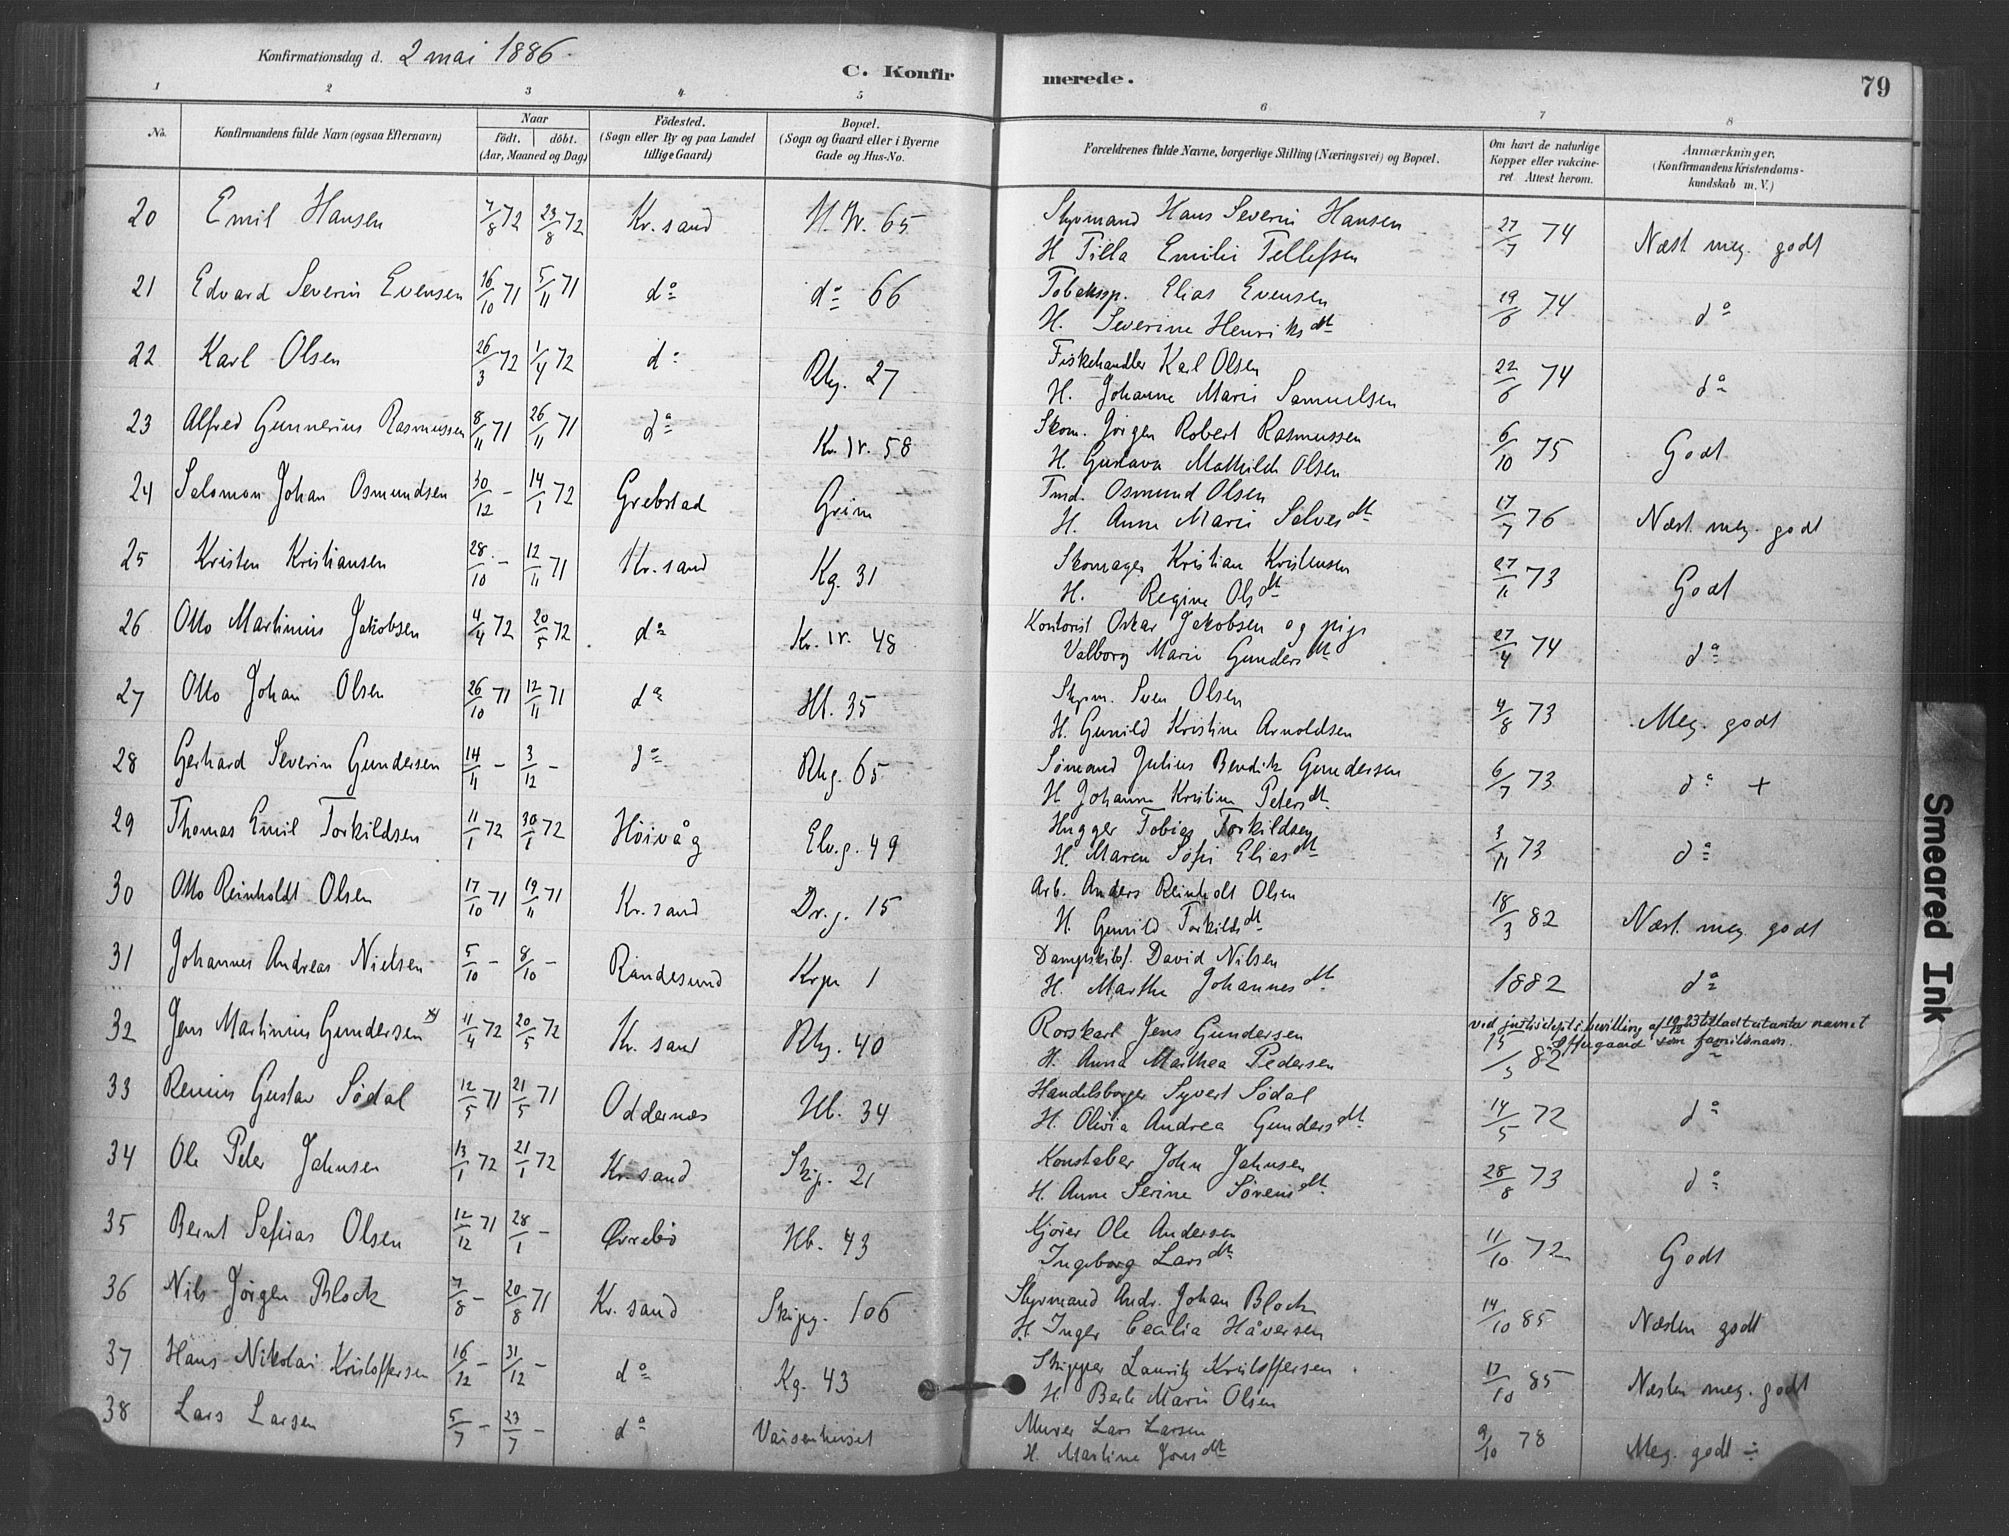 Konfirmationsdag d. 2 mai 1886.
C. Konfirmerede.
79
1 2 3 4 5 6 7 8
No. Konfirmandens fulde Navn (ogsaa Efternavn) Naar födt. döbt. (Aar, Maaned og Dag) Födested. (Sogn eller By og paa Landet tillige Gaard) Bopæl. (Sogn og Gaard eller i Byerne Gade og Hus-No. Forældrenes fulde Navne, borgerlige Stilling (Næringsvei) og Bopæl. Om havt de naturlige Kopper eller vakcineret Attest herom. Anmærkninger. (Konfirmandens Kristendomskundskab m. V.)
20 Emil Hansen 7/8 72 23/8 72 Kr.sand 65 Styrmand Hans Severin Hansen 27/7 74 Næst meg. godt
H Tilla Emilie Tellefsen
21 Edvard Severin Evensen 16/10 71 5/11 71 do do 66 Elias Evensen 19/6 74 do
H. Severine Henriksdt
22 Karl Olsen 26/3 72 1/4 72 do Rhg. 27 Fiskehandler Karl Olsen 22/6 74 do
H. Johanne Marie Samuelsen
23 Alfred Gunnerius Rasmussen 8/11 71 26/11 71 do 58 Skom. Jörgen Robert Rasmussen 6/10 75 Godt
H. Gustava Mathilde Olsen
24 Salomon Johan Osmundsen 30/12 - 14/1 72 Grebstad Grim Tmd. Osmund Olsen 17/7 76 Næst meg. godt
H. Anne Marie Salvesdt
25 Kristen Kristiansen 28/10 - 12/11 71 Kr.sand Kg. 31 Skomager Kristian Kristensen 27/11 73 Godt
H. Regine Olsdt
26 Otto Martinius Jakobsen 4/4 72 20/5 72 do 48 Kontorist Oskar Jakobsen og pige 27/4 74 do
Valborg Marie Gundersdt
27 Otto Johan Olsen 26/10 71 12/11 71 do 35 Styrm. Sven Olsen 4/8 73 Meg. godt
H. Gunild Kristine Arnoldsen
28 Gerhard Severin Gundersen 14/11 - 3/12 - do Rhg. 65 Sömand Julius Bendik Gundersen 6/7 73 do +
H Johanne Kristine Petersdt
29 Thomas Emil Torkildsen 11/1 72 30/1 72 Höivåg Elv.g. 49 Hugger Tobias Torkildsen 3/11 73 do
H. Maren Sofie Eliasdt
30 Otto Reinholdt Olsen 17/10 71 19/11 71 Kr.sand Dr.g. 15 Arb. Anders Reinholdt Olsen 18/3 82 Næst meg. godt
H. Gunild Torkildsdt
31 Johannes Andreas Nielsen 5/10 - 8/10 - Randesund 1 David Nilsen 1882 do
H. Marthe Johannesdt
32 Jens Martinius Gundersen 11/4 72 20/5 72 Kr.sand Rhg. 40 Rorskarl Jens Gundersen 15/5 82 do
ved bevilling af navnet som familienavn.
H. Anna Marthea Pedersen
33 Gustav Södal 12/5 71 21/5 71 Oddernæs Hb. 34 Handelsborger Syvert Södal 14/5 72 do
H. Olivia Andrea Gundersdt
34 Ole Peter Jahnsen 13/1 72 21/1 72 Kr.sand Skip. 21 Konstaber John Jahnsen 28/8 73 do
H. Anne Serine Sörensdt
35 Bernt Sefirias Olsen 12/12 71 28/1 - Övrebö Hb. 43 Kjörer Ole Andersen 11/10 72 Godt
Ingeborg Larsdt
36 Nils Jörgen Block 7/8 - 20/8 71 Kr.sand Skipg. 106 Styrmand Andr. Johan Block 14/10 85 Næsten godt
H. Inger Cecilia Håversen
37 Hans Nikolai Kristoffersen 16/12 - 31/12 - do Kg. 43 Skipper Lauritz Kristoffersen 17/10 85 Næsten meg. godt
H Berte Marie Olsen
38 Lars Larsen 5/7 - 23/7 - do Vaisenhuset Murer Lars Larsen 9/10 78 Meg. godt
H. Martine Jonsdt
Smeared Ink